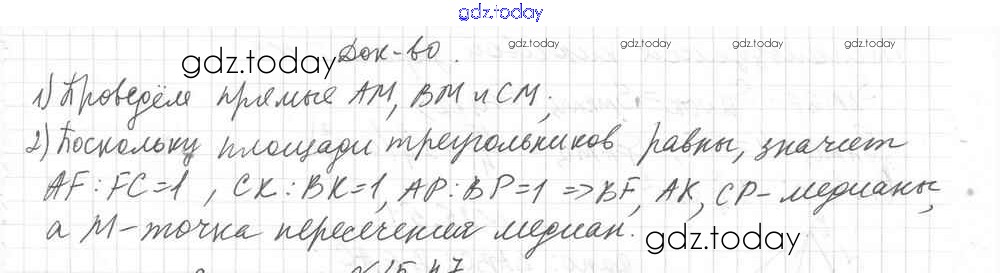 gdz.today
Док-во.
gdz.today
gdz.today gdz.today gdz.today
1) Проведём прямые AM, BM и CM;
2) Поскольку площади треугольников равны, значит
AF:FC=1, CK:BK=1, AP:BP=1 => BF, AK, CP - медианы,
а M - точка пересечения медиан.
gdz.today